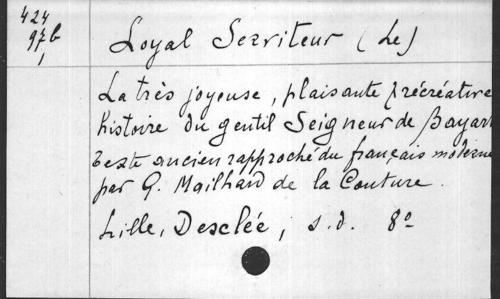 424
97b
1
Loyal Serviteur (Le)
La très joyeuse, plaisante & récréative
histoire du gentil Seigneur de Bayart
Texte ancien rapproché du français moderne
par G. Mailhard de la Couture.
Lille, Desclée, s.d. 8º